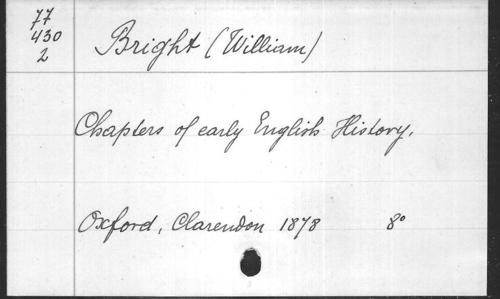 77
430
2
Bright (William)
Chapters of early English History.
Oxford, Clarendon 1878 8°